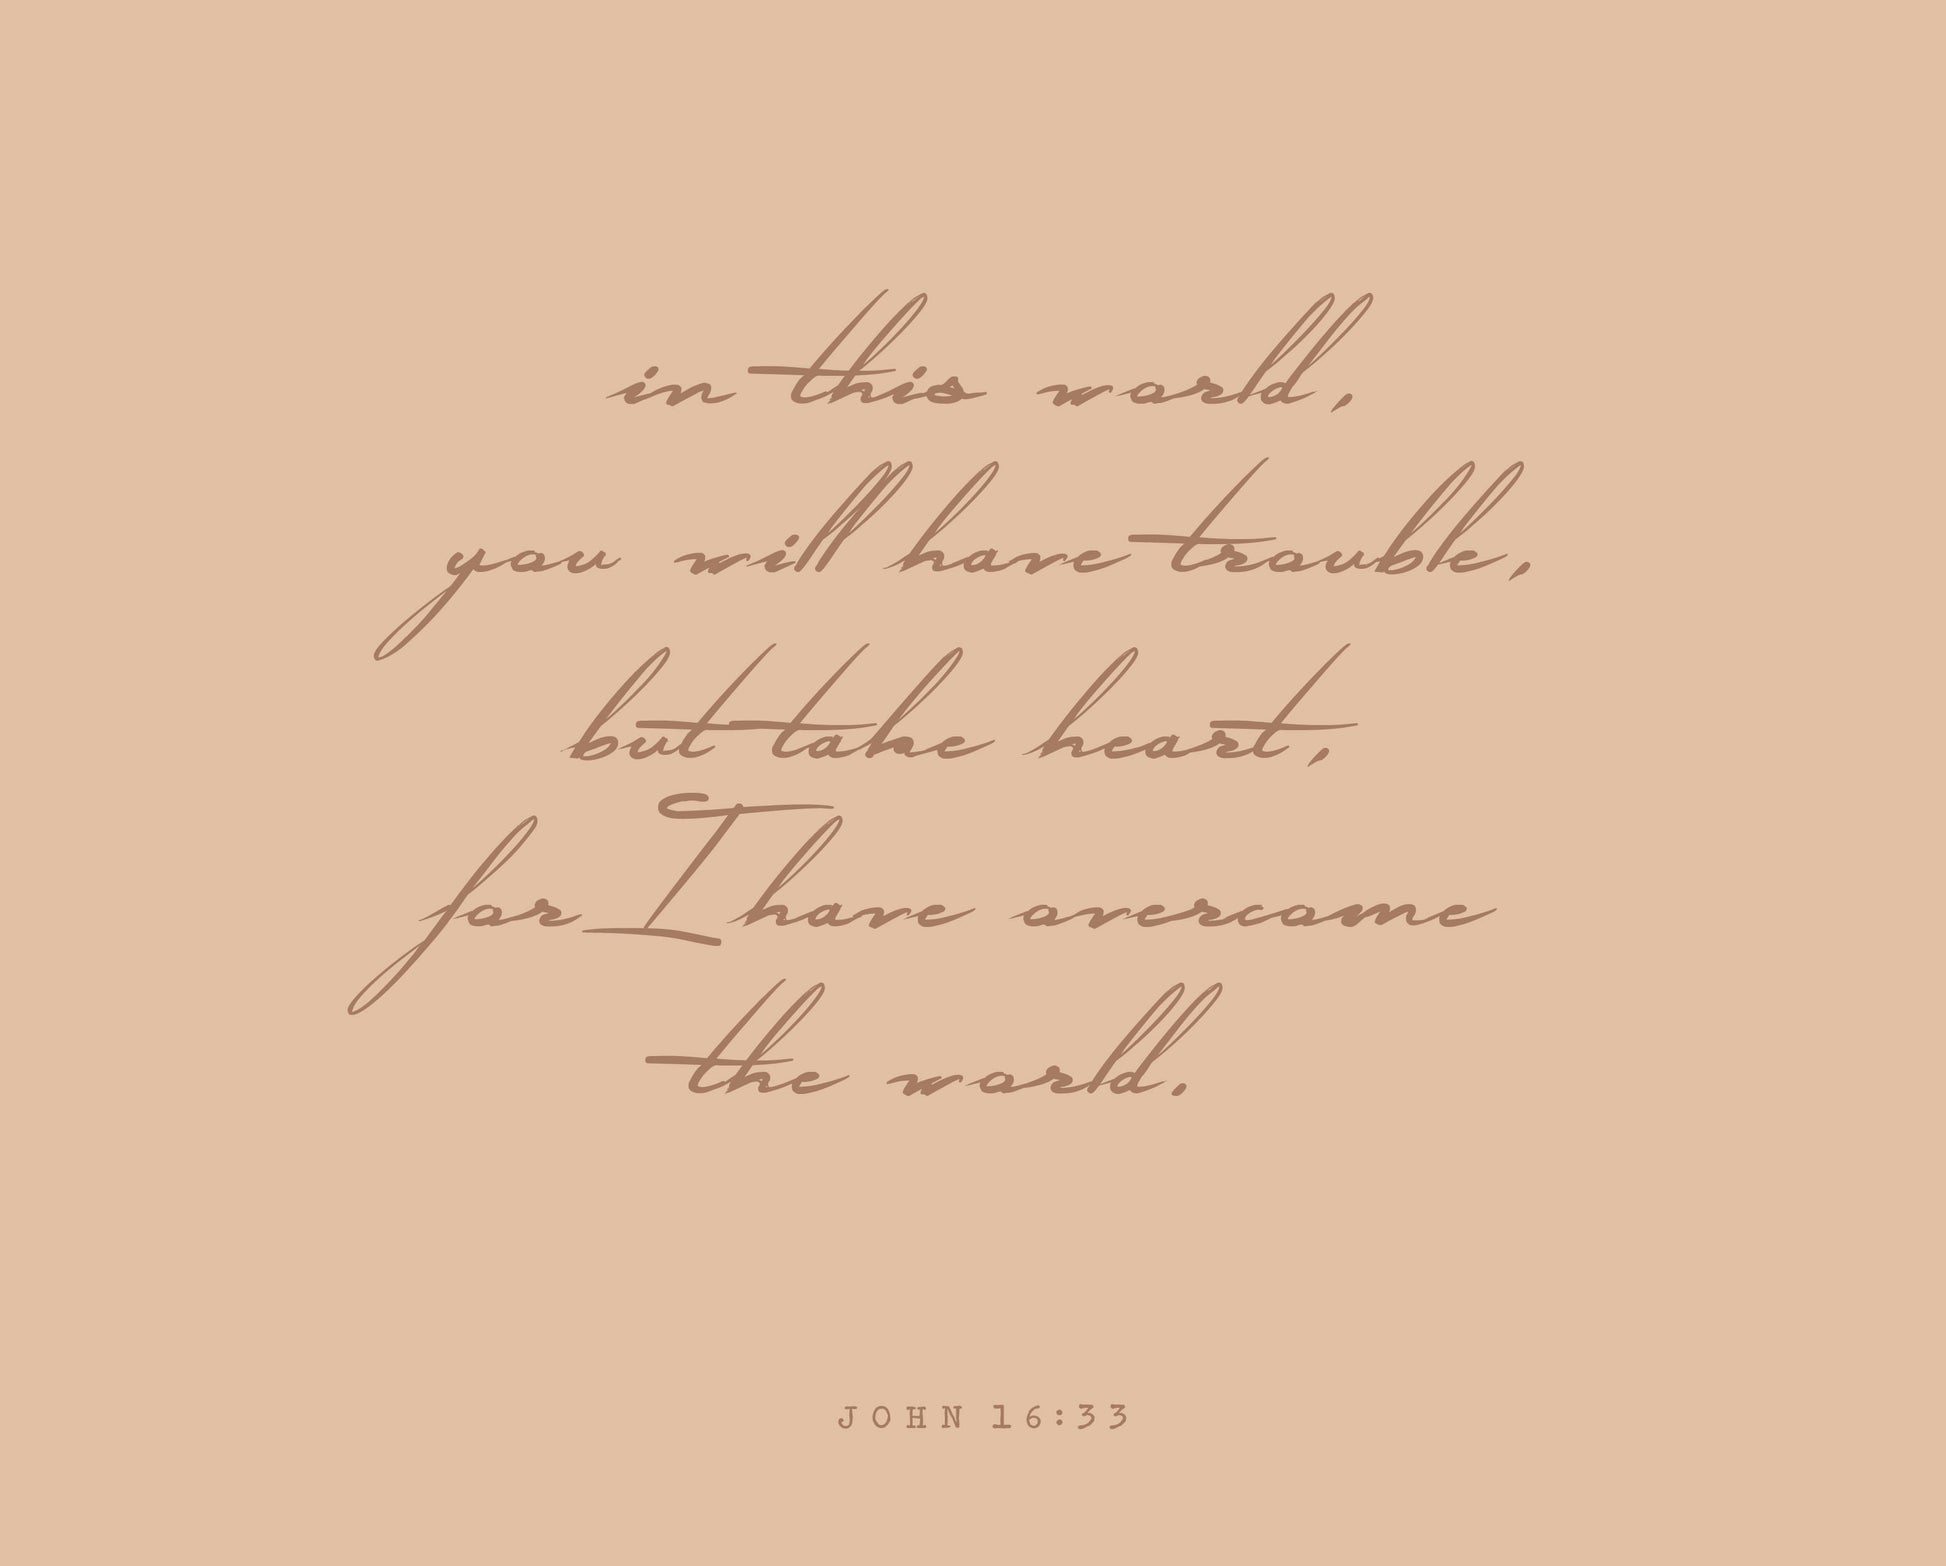 in this world,
you will have trouble,
but take heart,
for I have overcome
the world.
JOHN 16:33